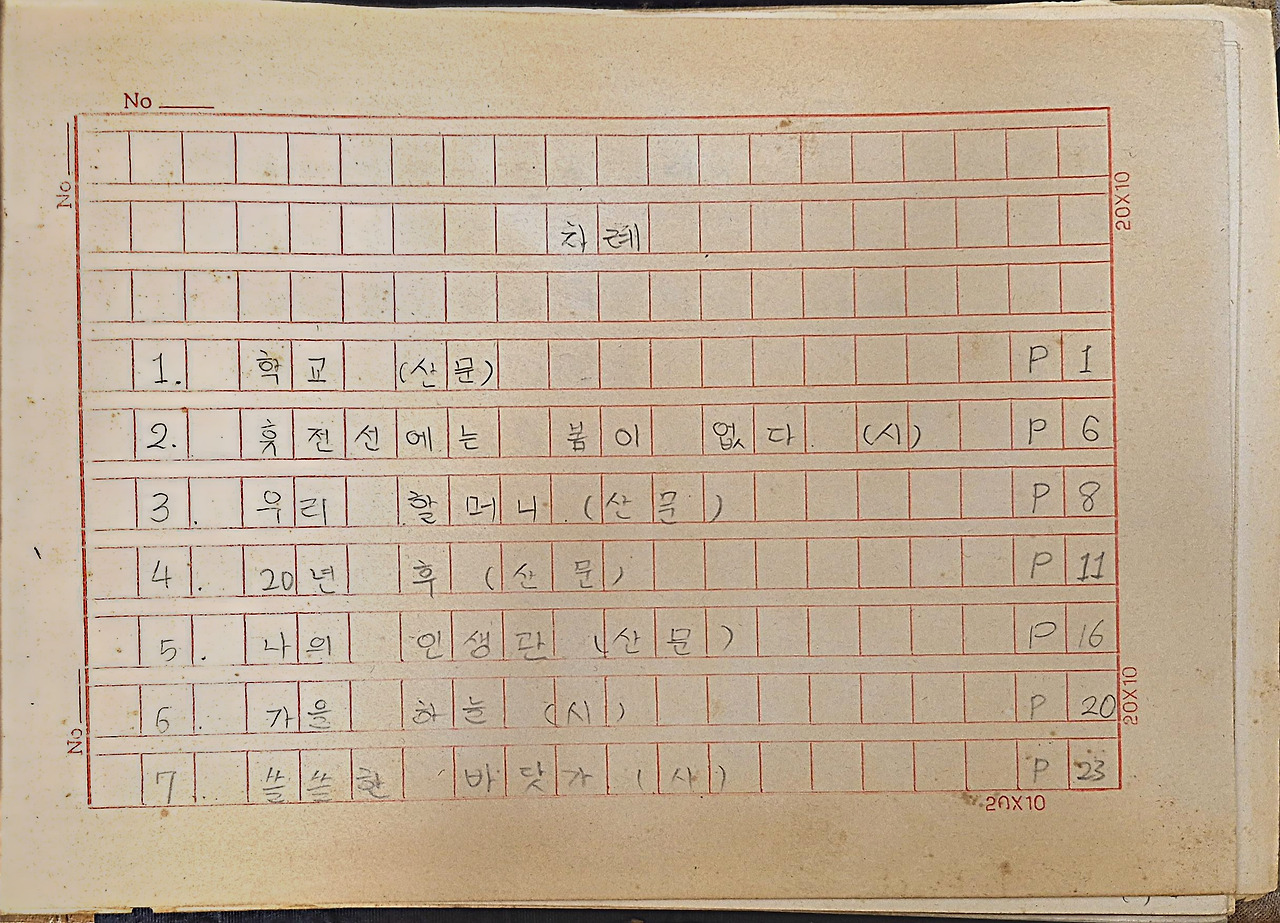 No
No
20X10
차례
1. 학교 (산문) P 1
2. 휴전선에는 봄이 없다 (시) P 6
3. 우리 할머니 (산문) P 8
4. 20년 후 (산문) P 11
5. 나의 인생관 (산문) P 16
6. 가을 하늘 (시) P 20
7. 쓸쓸한 바닷가 (시) P 23
No
20X10
20X10